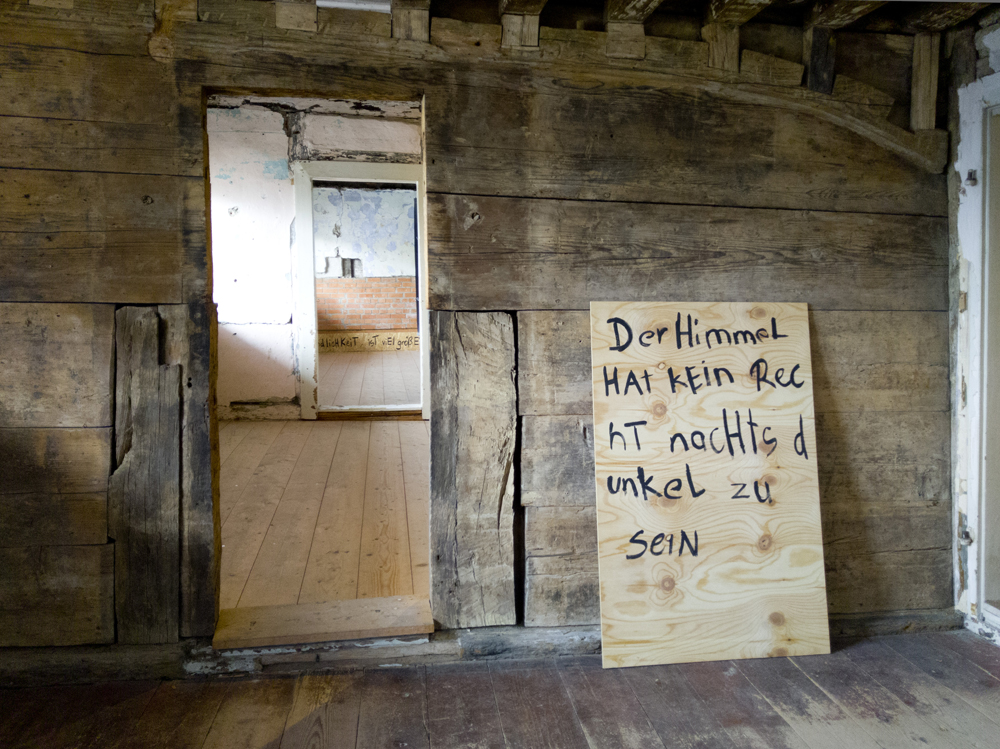 DerHimmeL
HAt kEin Rec
hT nacHts d
unkeL zu
seiN
licHKeiT isT viEl größE